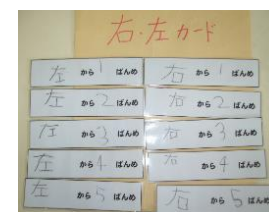 右・左カード
左 から 1 ばんめ
右 から 1 ばんめ
左 から 2 ばんめ
右 から 2 ばんめ
左 から 3 ばんめ
右 から 3 ばんめ
左 から 4 ばんめ
右 から 4 ばんめ
左 から 5 ばんめ
右 から 5 ばんめ